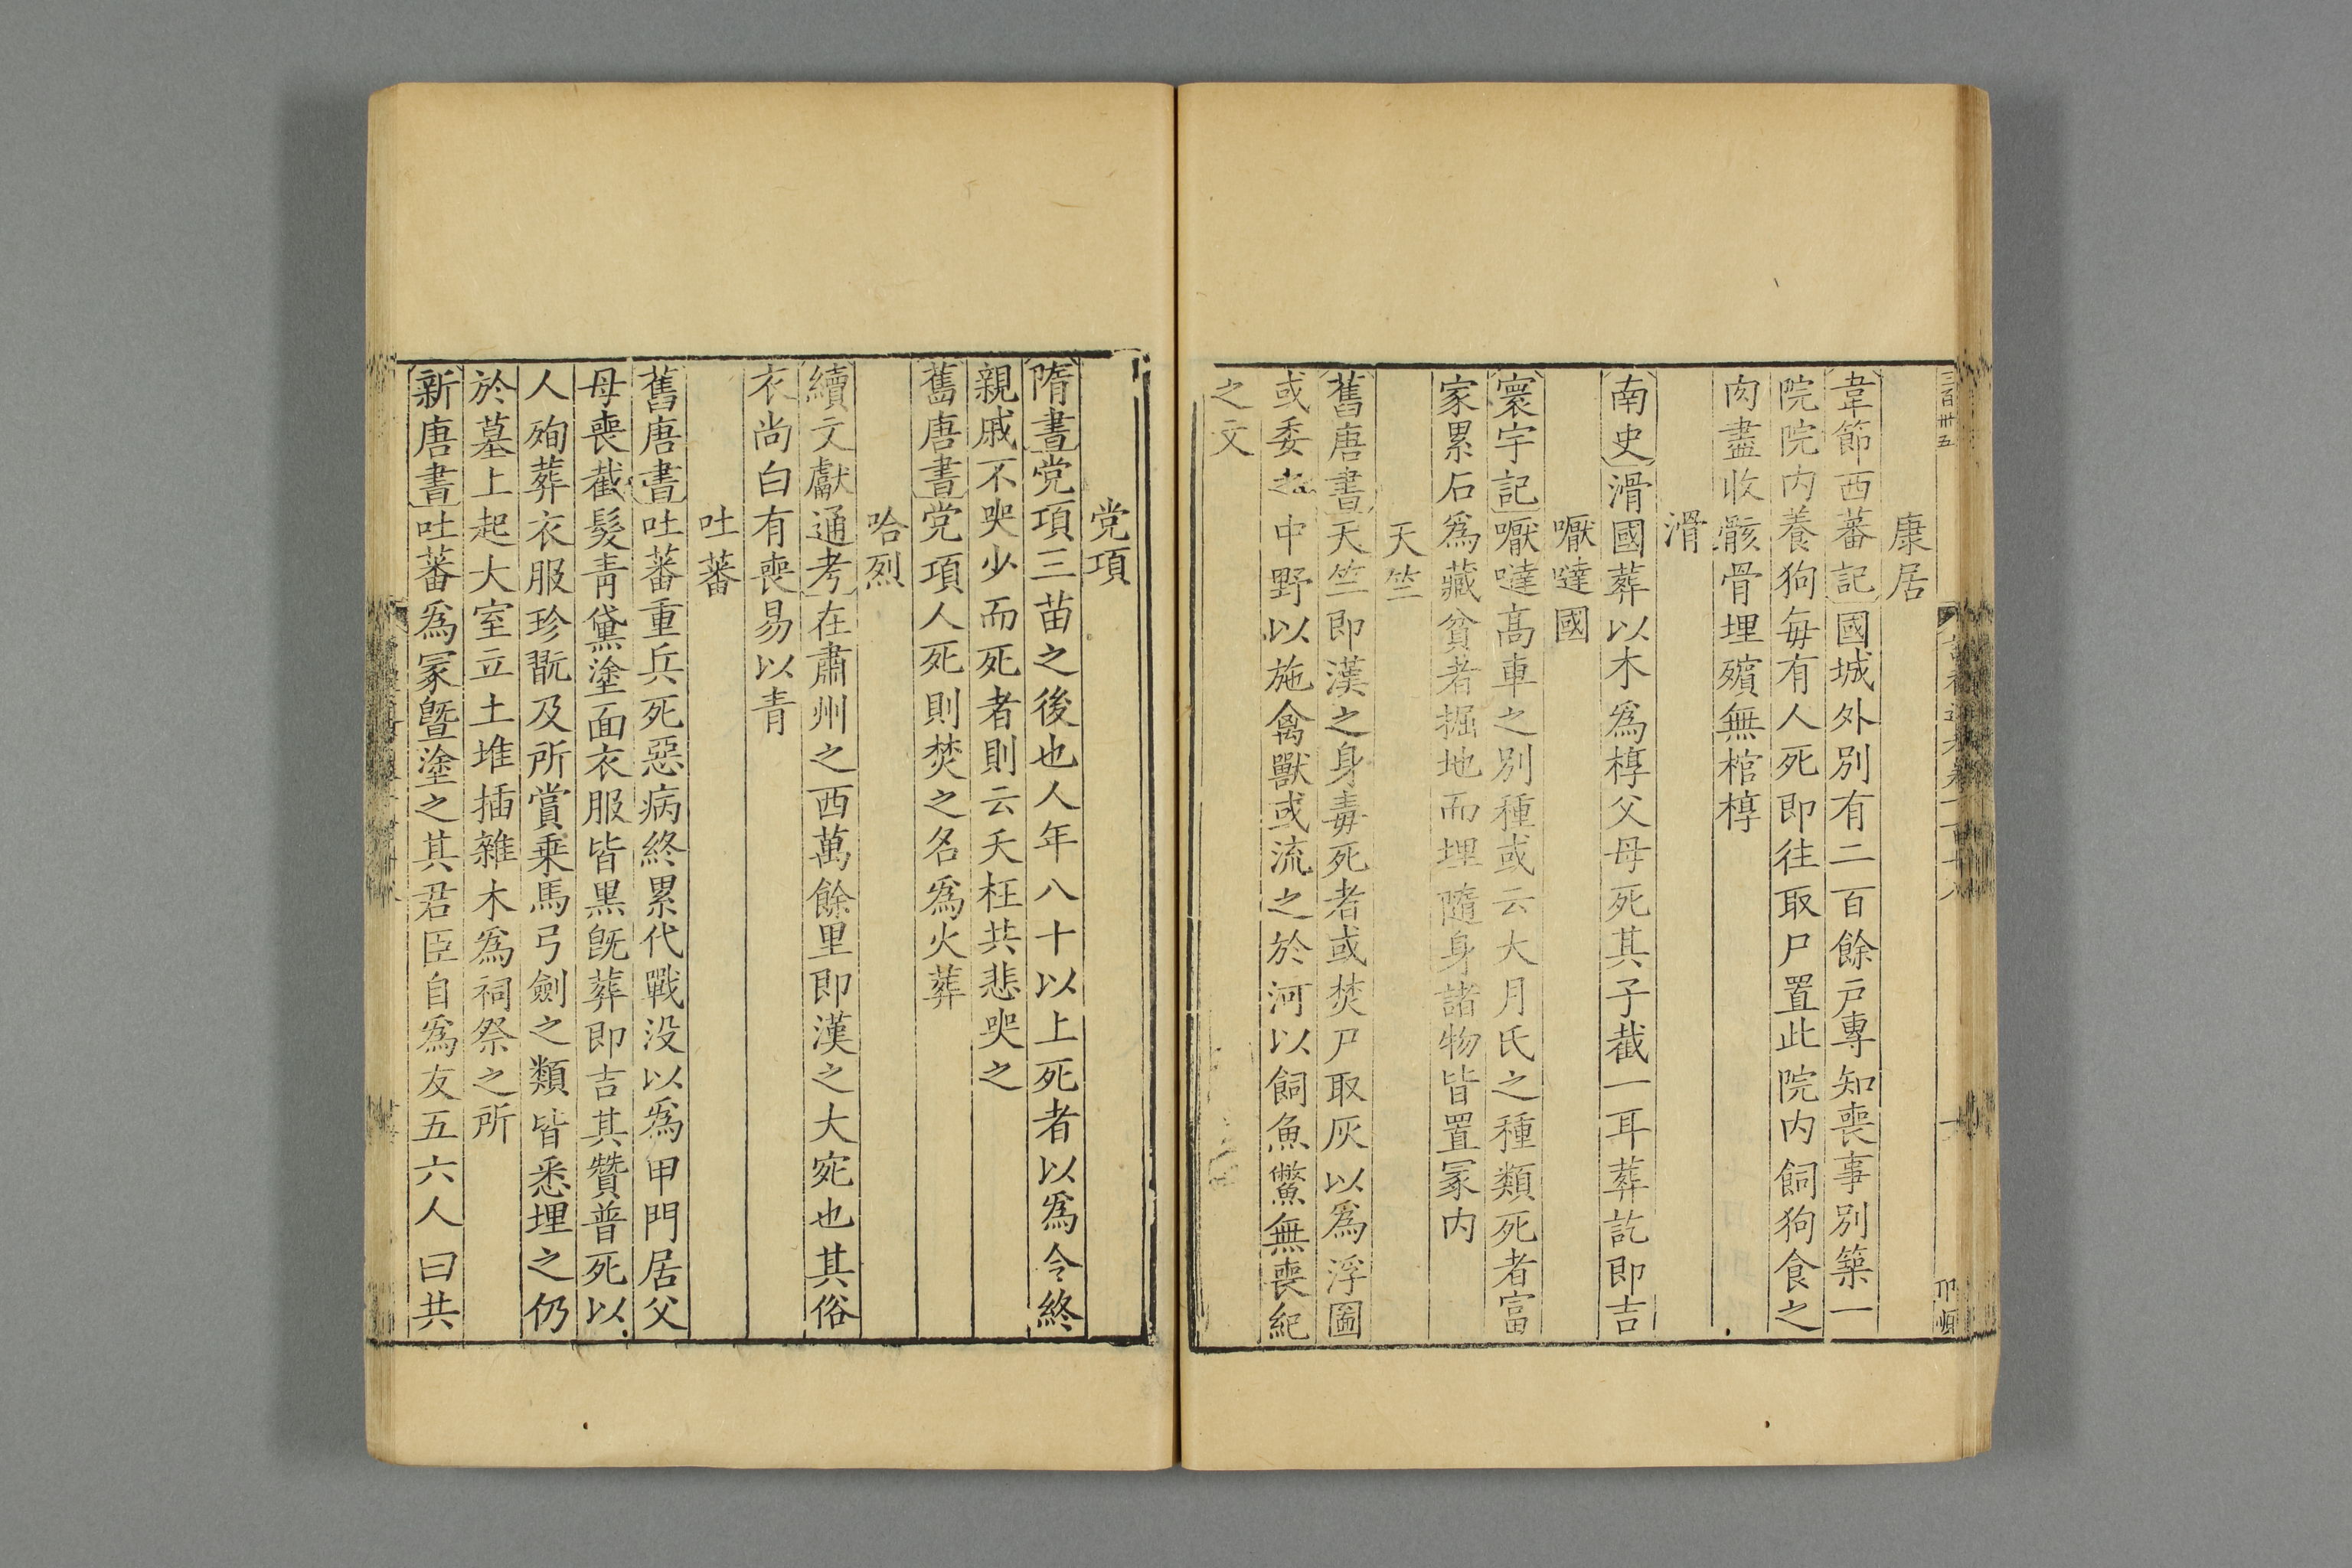 三百卅五
康居
韋節西蕃記國城外別有二百餘戶專知喪事別築一
院院內養狗每有人死即往取尸置此院內飼狗食之
肉盡收骸骨埋殯無棺椁
滑
南史滑國葬以木爲椁父母死其子截一耳葬訖即吉
嚈噠國
寰宇記嚈噠高車之別種或云大月氏之種類死者富
家累石爲藏貧者掘地而埋隨身諸物皆置冢內
天竺
舊唐書天竺即漢之身毒死者或焚尸取灰以爲浮圖
或委之中野以施禽獸或流之於河以飼魚鱉無喪紀
之文
党項
隋書党項三苗之後也人年八十以上死者以爲令終
親戚不哭少而死者則云夭枉共悲哭之
舊唐書党項人死則焚之名爲火葬
哈烈
續文獻通考在肅州之西萬餘里即漢之大宛也其俗
衣尚白有喪易以青
吐蕃
舊唐書吐蕃重兵死惡病終累代戰没以爲甲門居父
母喪截髮青黛塗面衣服皆黑既葬即吉其贊普死以
人殉葬衣服珍翫及所嘗乗馬弓劍之類皆悉埋之仍
於墓上起大室立土堆插雜木爲祠祭之所
新唐書吐蕃爲冢塈塗之其君臣自爲友五六人曰共